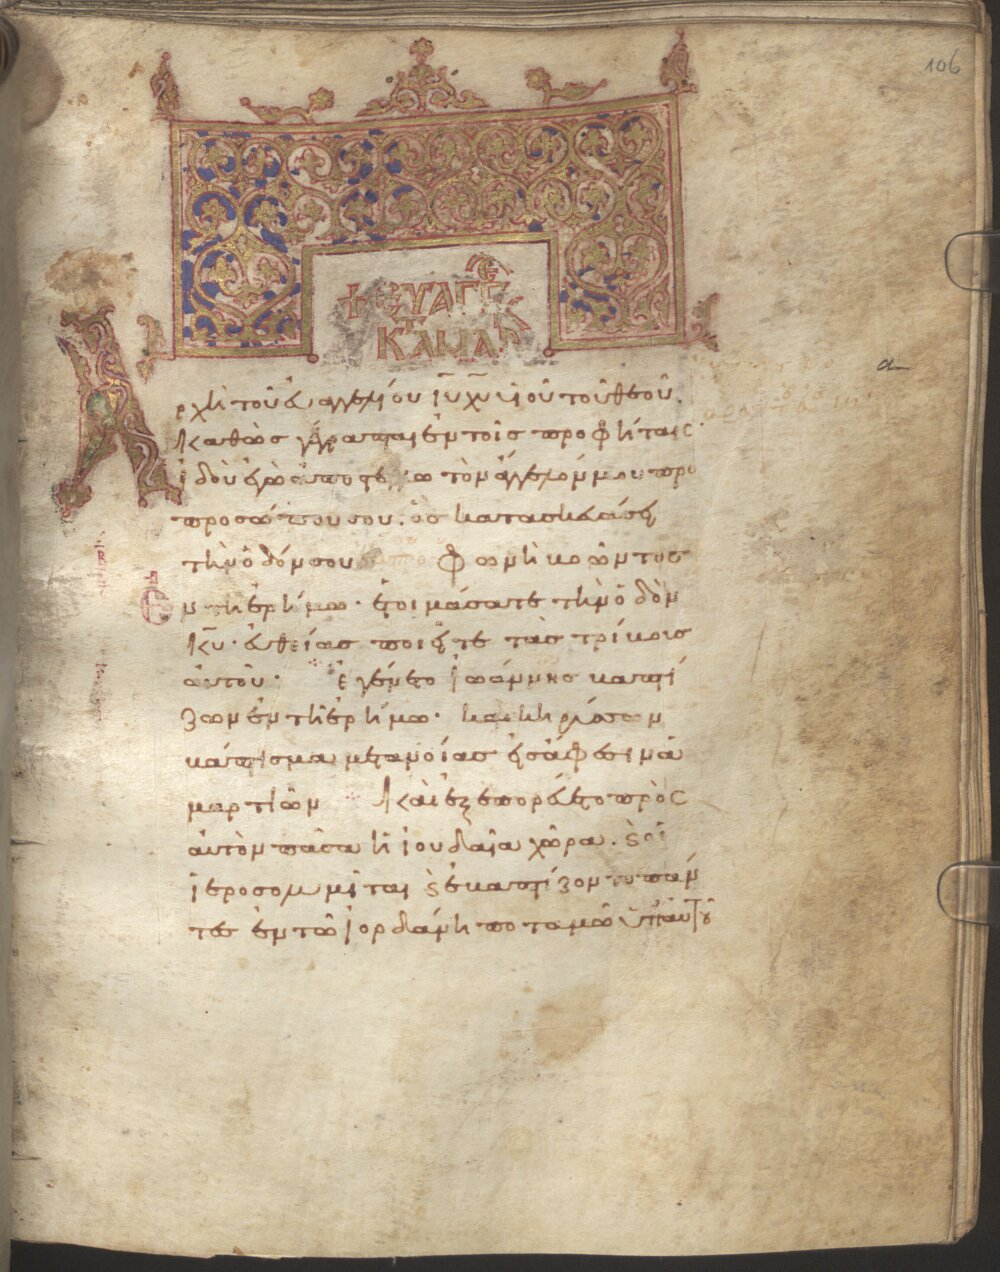 106
+ ΕΥΑΓΓΕ
Κ ΑΤ ΜΑΡ
Ἀρχὴ τοῦ εὐαγγελίου ἰυ χυ υἱοῦ τοῦ θεοῦ.
Καθὼς γέγραπται ἐν τοῖς προφήταις·
ἰδοὺ ἐγὼ ἀποστέλλω τὸν ἄγγελόν μου πρὸ
προσώπου σου. ὃς κατασκευάσει
τὴν ὁδόν σου φωνὴ βοῶντος
ἐν τῇ ἐρήμω· ἑτοιμάσατε τὴν ὁδὸν
κυ· εὐθείας ποιεῖτε τὰς τρίβους
αὐτοῦ· Ἐγένετο ἰωάννης βαπτί
ζων ἐν τῇ ἐρήμω· καὶ κηρύσσων
βάπτισμα μετανοίας εἰς ἄφεσιν ἁ
μαρτιῶν Καὶ ἐξεπορεύετο πρὸς
αὐτὸν πᾶσα ἡ ἰουδαία χώρα. ϗ οἱ
ἱεροσολυμῖται ϗ ἐβαπτίζοντο πάν
τες ἐν τῶ ἰορδάνη ποταμῶ ὑπ' αὐτοῦ